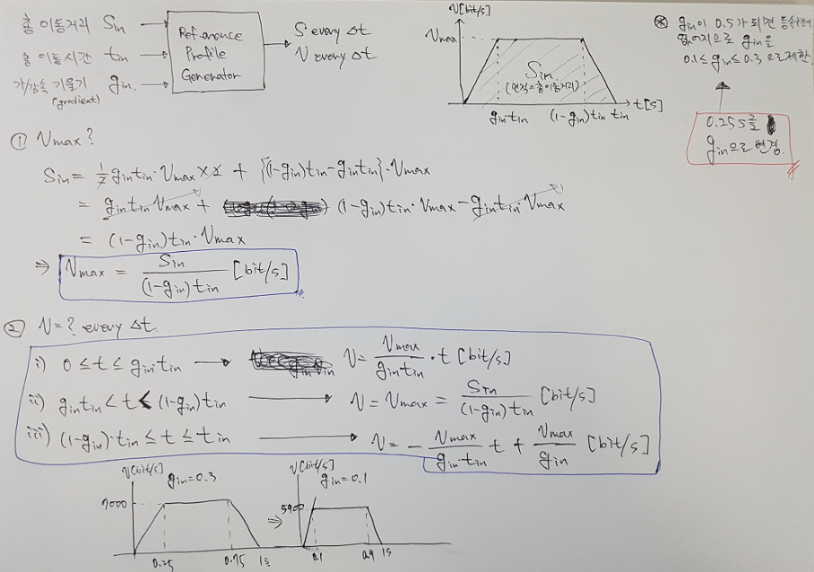 총 이동거리 Sin
총 이동시간 tin
가/감속 기울기 gin
(gradient)
Reference
Profile
Generator
S every Δt
V every Δt
V[bit/s]
Vmax
Sin
(면적=총이동거리)
gin·tin (1-gin)tin tin t[s]
※ gin이 0.5가 되면
없어지므로 gin을
0.1≤gin≤0.3 으로제한.
gin으로 변경.
① Vmax?
Sin = 1/2 gin tin·Vmax×2 + {(1-gin)tin-gin tin}·Vmax
= gin tin Vmax + (1-gin)tin·Vmax-gin tin·Vmax
= (1-gin)tin·Vmax
⇒ Vmax = Sin/((1-gin)tin) [bit/s]
② V=? every Δt.
i) 0≤t≤gin·tin → V = Vmax/(gin tin)·t [bit/s]
ii) gin tin<t<(1-gin)tin → V = Vmax = Sin/((1-gin)tin) [bit/s]
iii) (1-gin)·tin≤t≤tin → V = -Vmax/(gin·tin) t + Vmax/gin [bit/s]
V[bit/s]
gin=0.3
7000
0.25 0.75 1s
⇒
V[bit/s]
gin=0.1
5900
0.1 0.9 1s